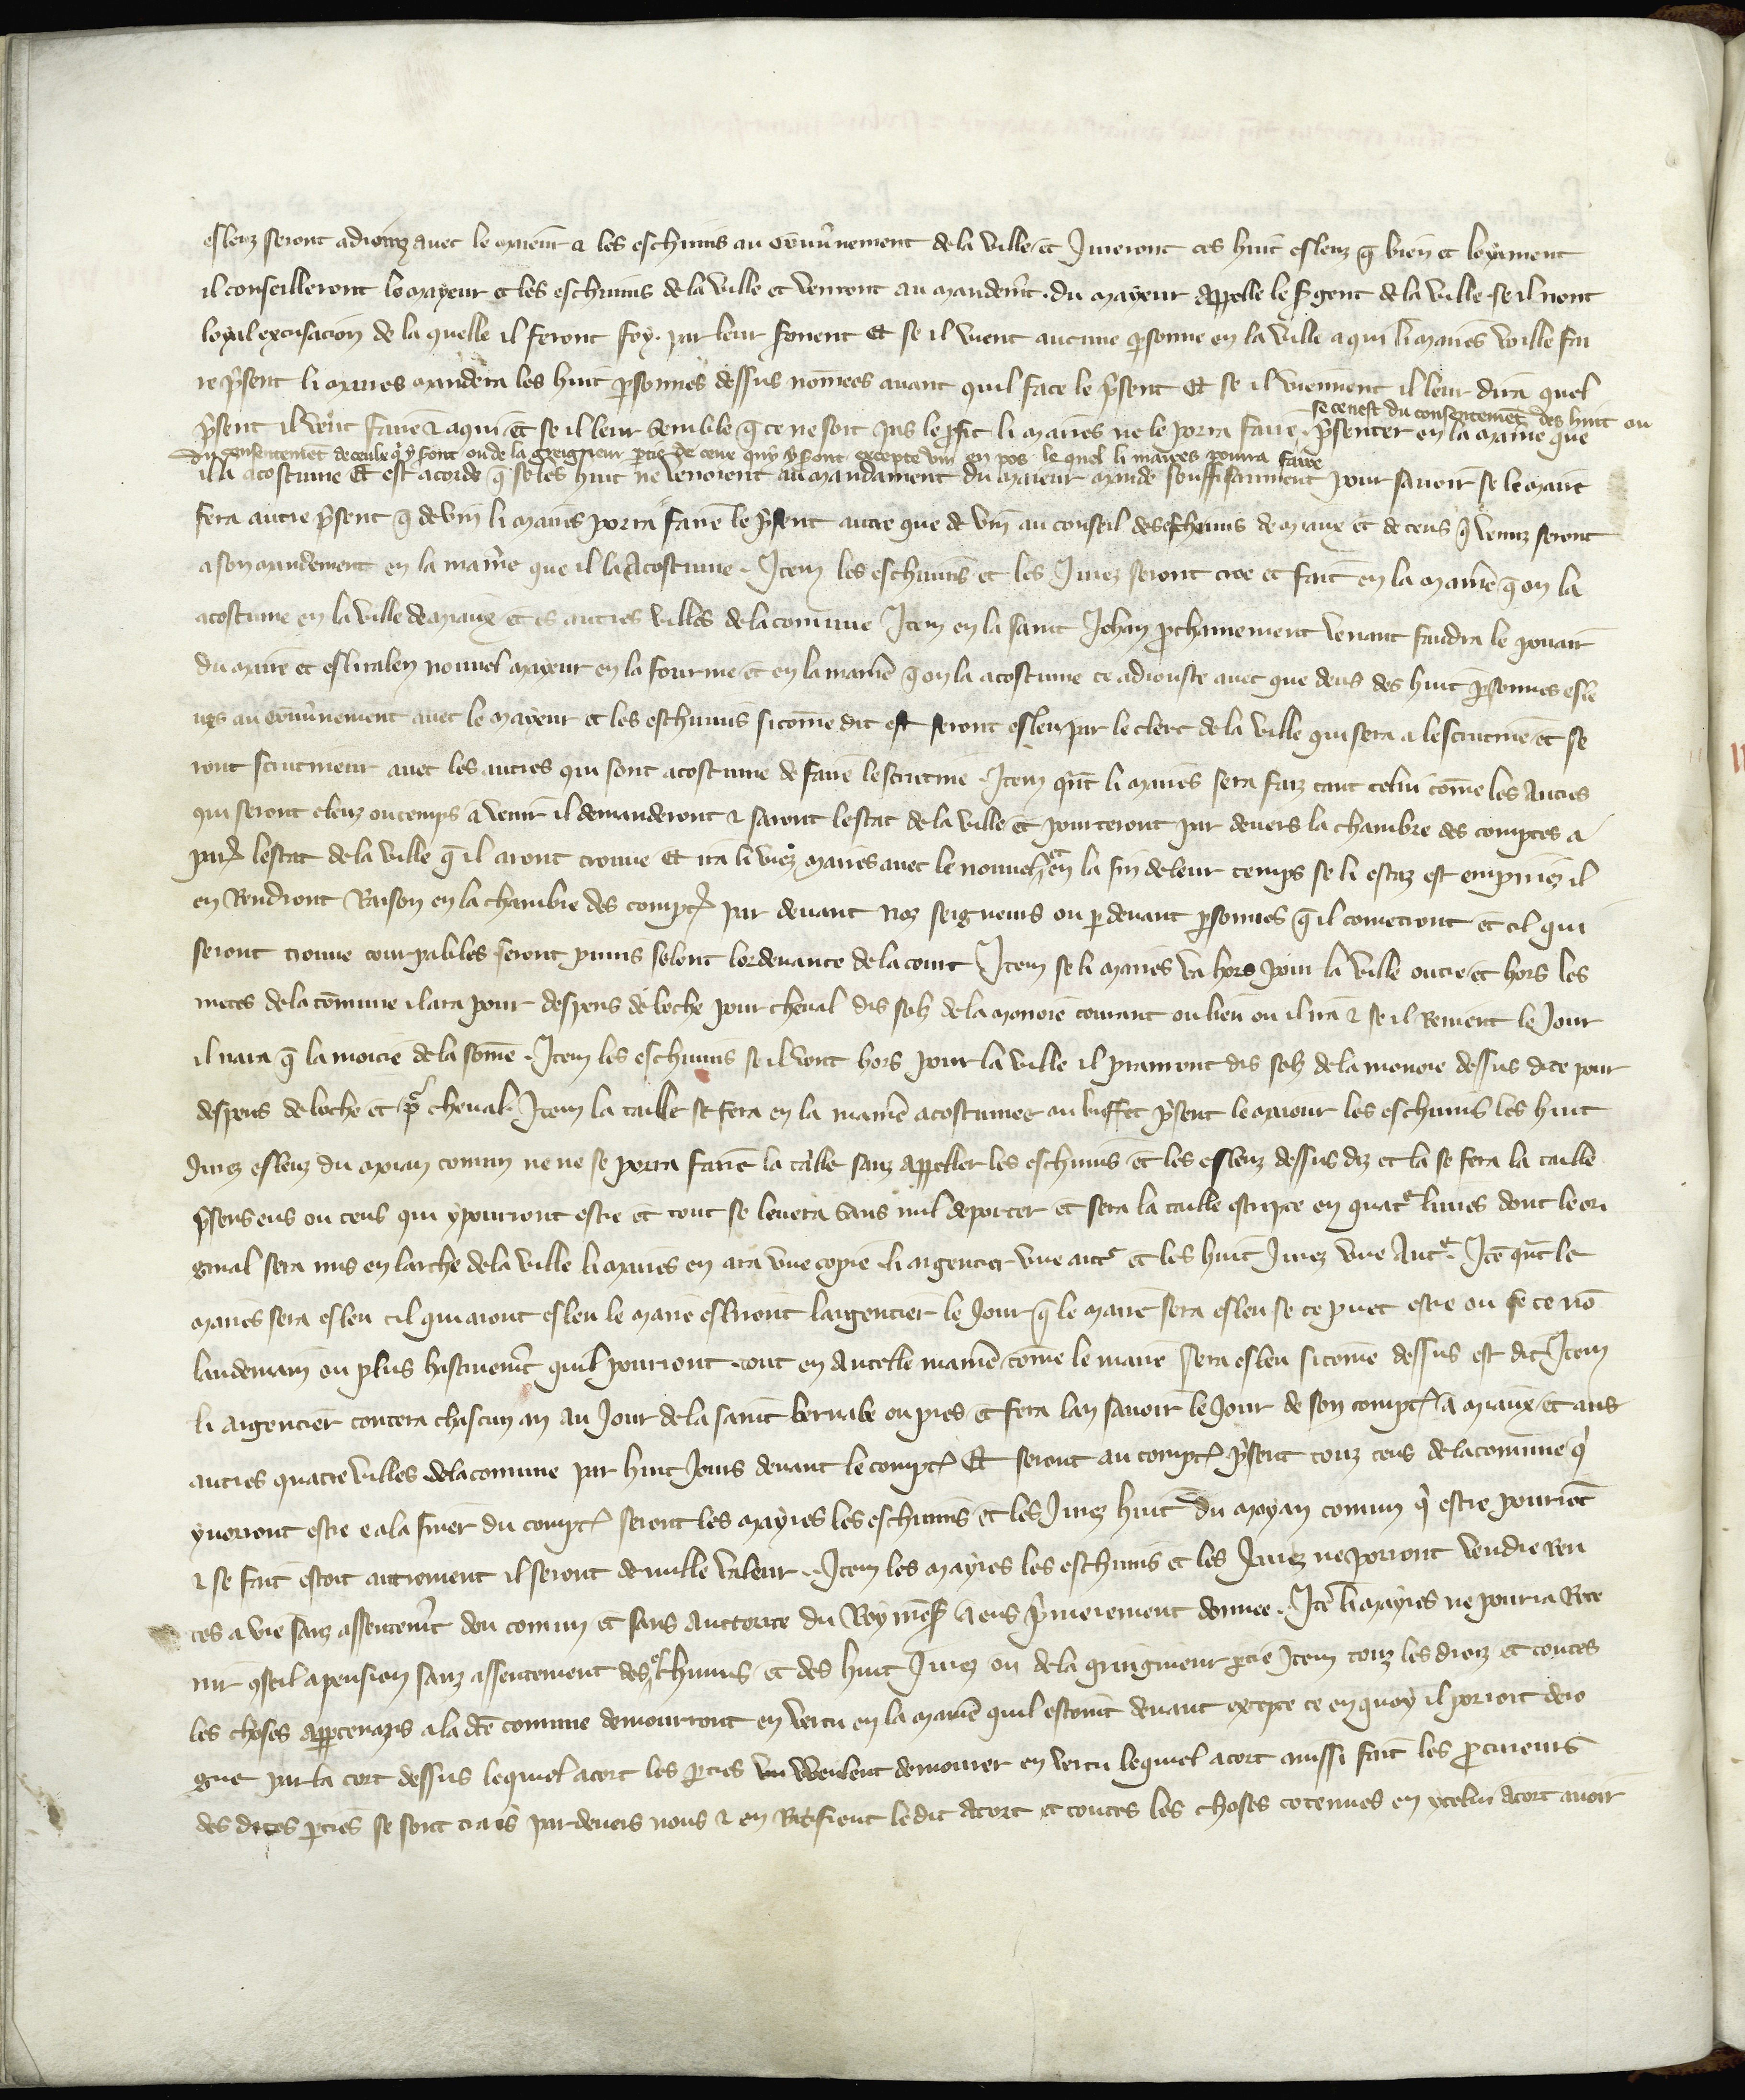 esleuz seront adioinz auec le maieur & les escheuins au gouũnement de la ville et Jureront ces huit esleuz q̃ bien et loyaument
il conseilleront le mayeur et les escheuins de la ville et venront au mandemẽt du mayeur appelle le sgent de la ville se il nont
loyal excusacion de la quelle il feront foy par leur serment Et se il vient aucune psonne en la ville a qui li maires voille fai
re psent li maires mandera les huit psonnes dessus nomees auant quil face le psent Et se il viennent il leur dira quel
se ce nest du consentemẽt des huit ou
psent il veut faire & a qui et se il leur semble q̃ ce ne soit pas le pfit li maires ne le porra faire psenter en la maniere que
du consentemẽt de ceulz q̃ y sont ou de la greigneur ptie de ceux qui y sont excepte vin en pos le quel li maires pourra faire
il a acostume Et est acorde q̃ se les huit ne venoient au mandament du maieur mande souffisanment pour sauoir se le maire
fera autre psent q̃ de vin li maires porra faire le psent autre que de vin au conseil des escheuins de miaux et de ceus q̃ venuz seront
a son mandement en la maniere que il la acostume Item les escheuins et les Jurez seront cree et fait en la maniere q̃ on la
acostume en la ville de miaux et es autres villes de la comune Item en la saint Jehan pchainement venant faudra le pouair
du maire et eslira len nouuel mayeur en la fourme et en la maniere q̃ on la acostume ce adiouste auec que deus des huit psonnes esle
ues au gouũnement auec le mayeur et les escheuins sicõme dit est seront esleu par le clerc de la ville qui sera a lescrutine et se
ront scrutineur auec les autres qui sont acostume de faire lescrutine Item qũt li maires sera faiz tant celui cõme les autres
qui seront eleuz ou temps a venir il demanderont & saront lestat de la ville et pourteront par deuers la chambre des comptes a
paris lestat de la ville q̃ il aront trouue Et ira li viez maires auec le nouuel et en la fin de leur temps se li estaz est empiriez il
en Rendront Raison en la chambre des comptes par deuant noz seigneurs ou p deuant psonnes q̃ il cometront et cil qui
seront trouue courpables seront punis selont lordenance de la court Item se li maires va hors pour la ville outre et hors les
metes de la cõmune il ara pour despens de boche pour cheual dis solz de la monoie courant ou lieu ou il ira & se il Reuient le Jour
il nara q̃ la moitie de la some Item les escheuins se il vont hors pour la ville il pranront dis solz de la monoie dessus dite pour
despens de boche et pr cheual Item la taille se fera en la maniere acostumee au buffet psent le maieur les escheuins les huit
Jurez esleuz du moian comun ne ne se porra faire la taille sanz appeller les escheuins et les esleuz dessus diz et la se fera la taille
psens eus ou ceus qui y pourront estre et tout se leuera sans nul deporter et sera la taille escripte en quatre liures dont le ori
ginal sera mis en larche de la ville li maires en ara vne copie li argentier vne autre et les huit Jurez vne Autre Itẽ qũt le
maires sera esleu cil qui aront esleu le maire esliront largentier le Jour q̃ le maire sera esleu se ce puet estre ou se ce nõ
landemain ou plus hastiuemẽt quil pourront tout en autelle maniere cõme le maire sera esleu sicõme dessus est dit Item
li argentier contera chascun an au Jour de la saint bernabe ou pres et fera lan sauoir le Jour de son compte a miaux et aus
autres quatre villes de la comune par huit Jours deuant le compte Et seront au compte psent touz ceus de la comune q̃
y vorront estre e a la finer du compte seront les mayres les escheuins et les Jurez huit du moyan comun q̃ estre pourrõt
& se fait estoit autrement il seront de nulle valeur Item les mayres les escheuins et les Jurez ne porront vendre ren
tes a vie sanz assentemẽt dou comun et sans auctorite du Roy mess a eus pmierement donnee Itẽ li mayres ne pourra Rete
nir cõseil a pension sanz assentement des escheuins et des huit Jurez ou de la greigneur ptie Item touz les droiz et toutes
les choses appartenans a la dte comune demourront en vertu en la maniere quil estoint deuant excepte ce en quoy il porroit dero
gue par la cort dessus lequel acort les pties weulent demourer en vertu lequel acort ainssi fait les pcureurs
des dites pties se sont trais par deuers nous & en Ratifient ledit acort et toutes les choses cotenues en ycelui acort auoir